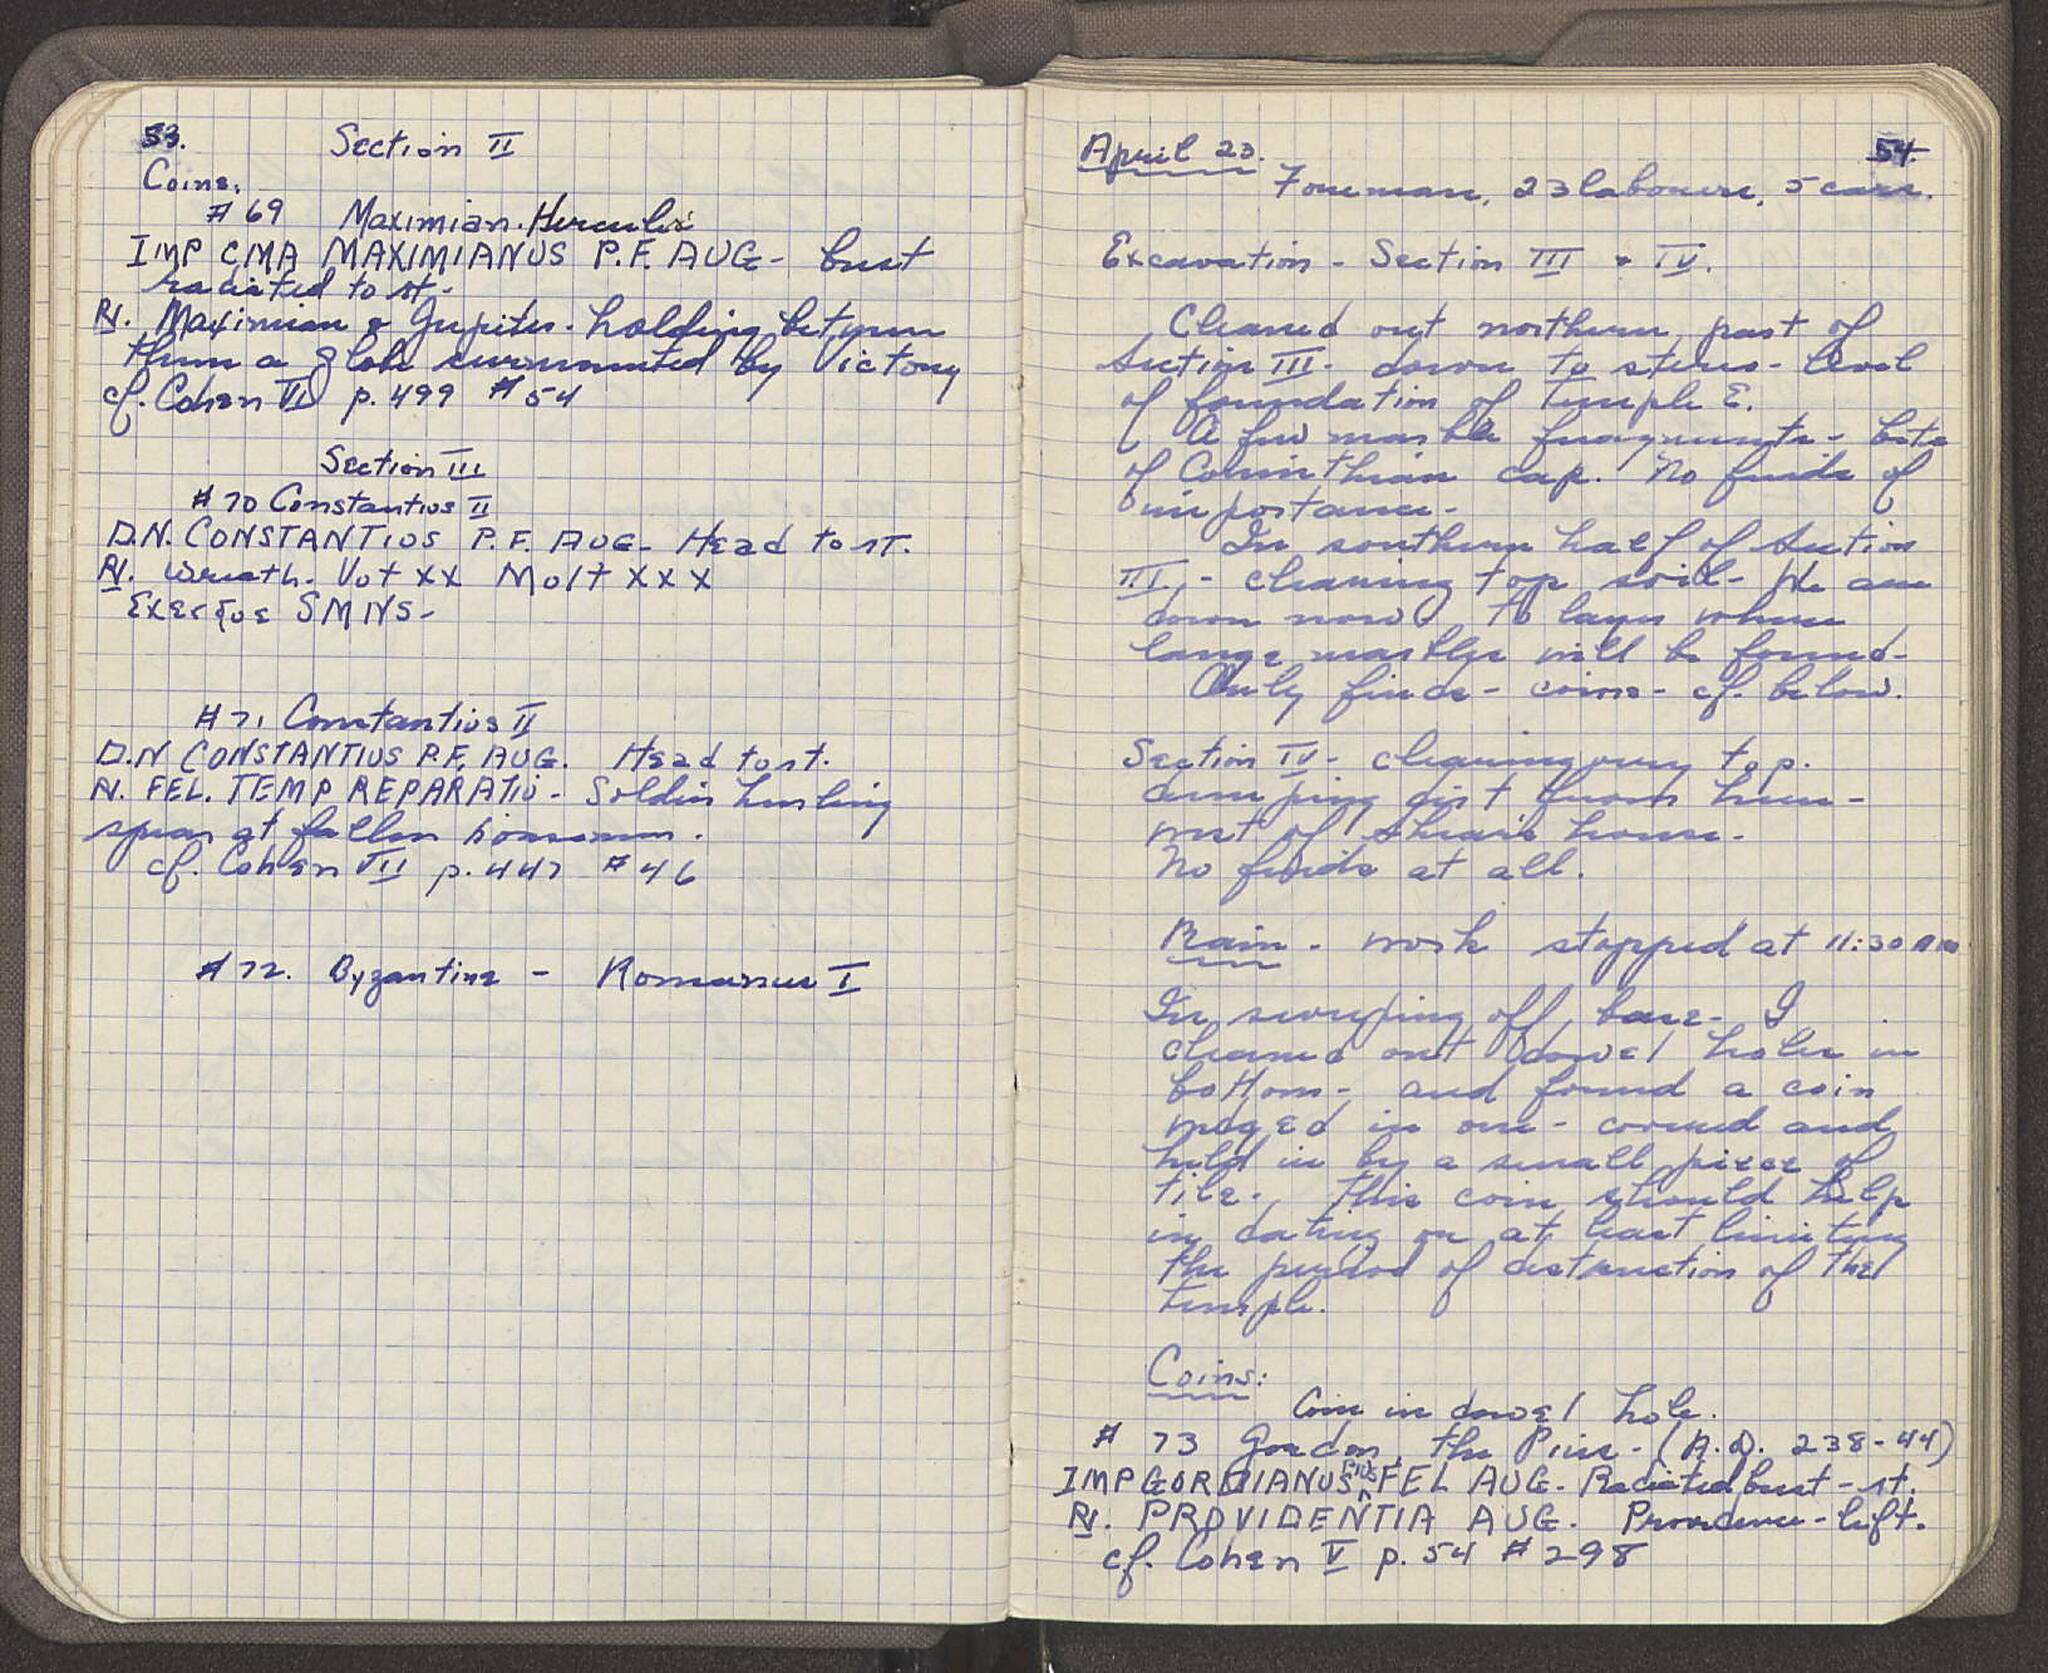 53.
Section II
Coins.
# 69 Maximian. Herculis
IMP CMA MAXIMIANUS P.F. AUG - bust
radiated to rt.
Rv. Maximian & Jupiter. holding between
them a globe surmounted by Victory
cf. Cohen VI p. 499 # 54
Section III
# 70 Constantius II
D.N. CONSTANTIUS P.F. AUG - Head to rt.
Rv. Wreath. Vot XX Molt XXX
Exergue SMNS -
# 71 Constantius II
D.N CONSTANTIUS P.F. AUG. Head to rt.
Rv. FEL. TEMP REPARATIO - Soldier hurling
spear at fallen horseman.
cf. Cohen VII p. 447 # 46
# 72. Byzantine - Romanus I
April 23. 54.
Foreman, 23 labourers, 5 cars.
Excavation - Section III & IV.
Cleaned out northern part of
Section III - down to stereo - level
of foundation of temple E.
A few marble fragments - bits
of Corinthian cap. No finds of
importance -
In southern half of Section
III, - cleaning top soil - We are
down now to layer where
large marbles will be found -
Only finds - coins - cf. below.
Section IV - cleaning very top.
dumping dirt from here -
west of Shear's house -
No finds at all.
Rain - work stopped at 11:30 AM
In sweeping off base - I
cleaned out dowel holes in
bottom - and found a coin
wedged in one - covered and
held in by a small piece of
tile - This coin should help
in dating or at least limiting
the period of destruction of the
temple.
Coins:
Coin in dowel hole.
# 73 Gordon, the Pius - (A.D. 238-44)
IMP GORDIANUS PIUS FEL AUG. Radiated bust - rt.
Rv. PROVIDENTIA AUG. Providence - left.
cf. Cohen V p. 54 # 298